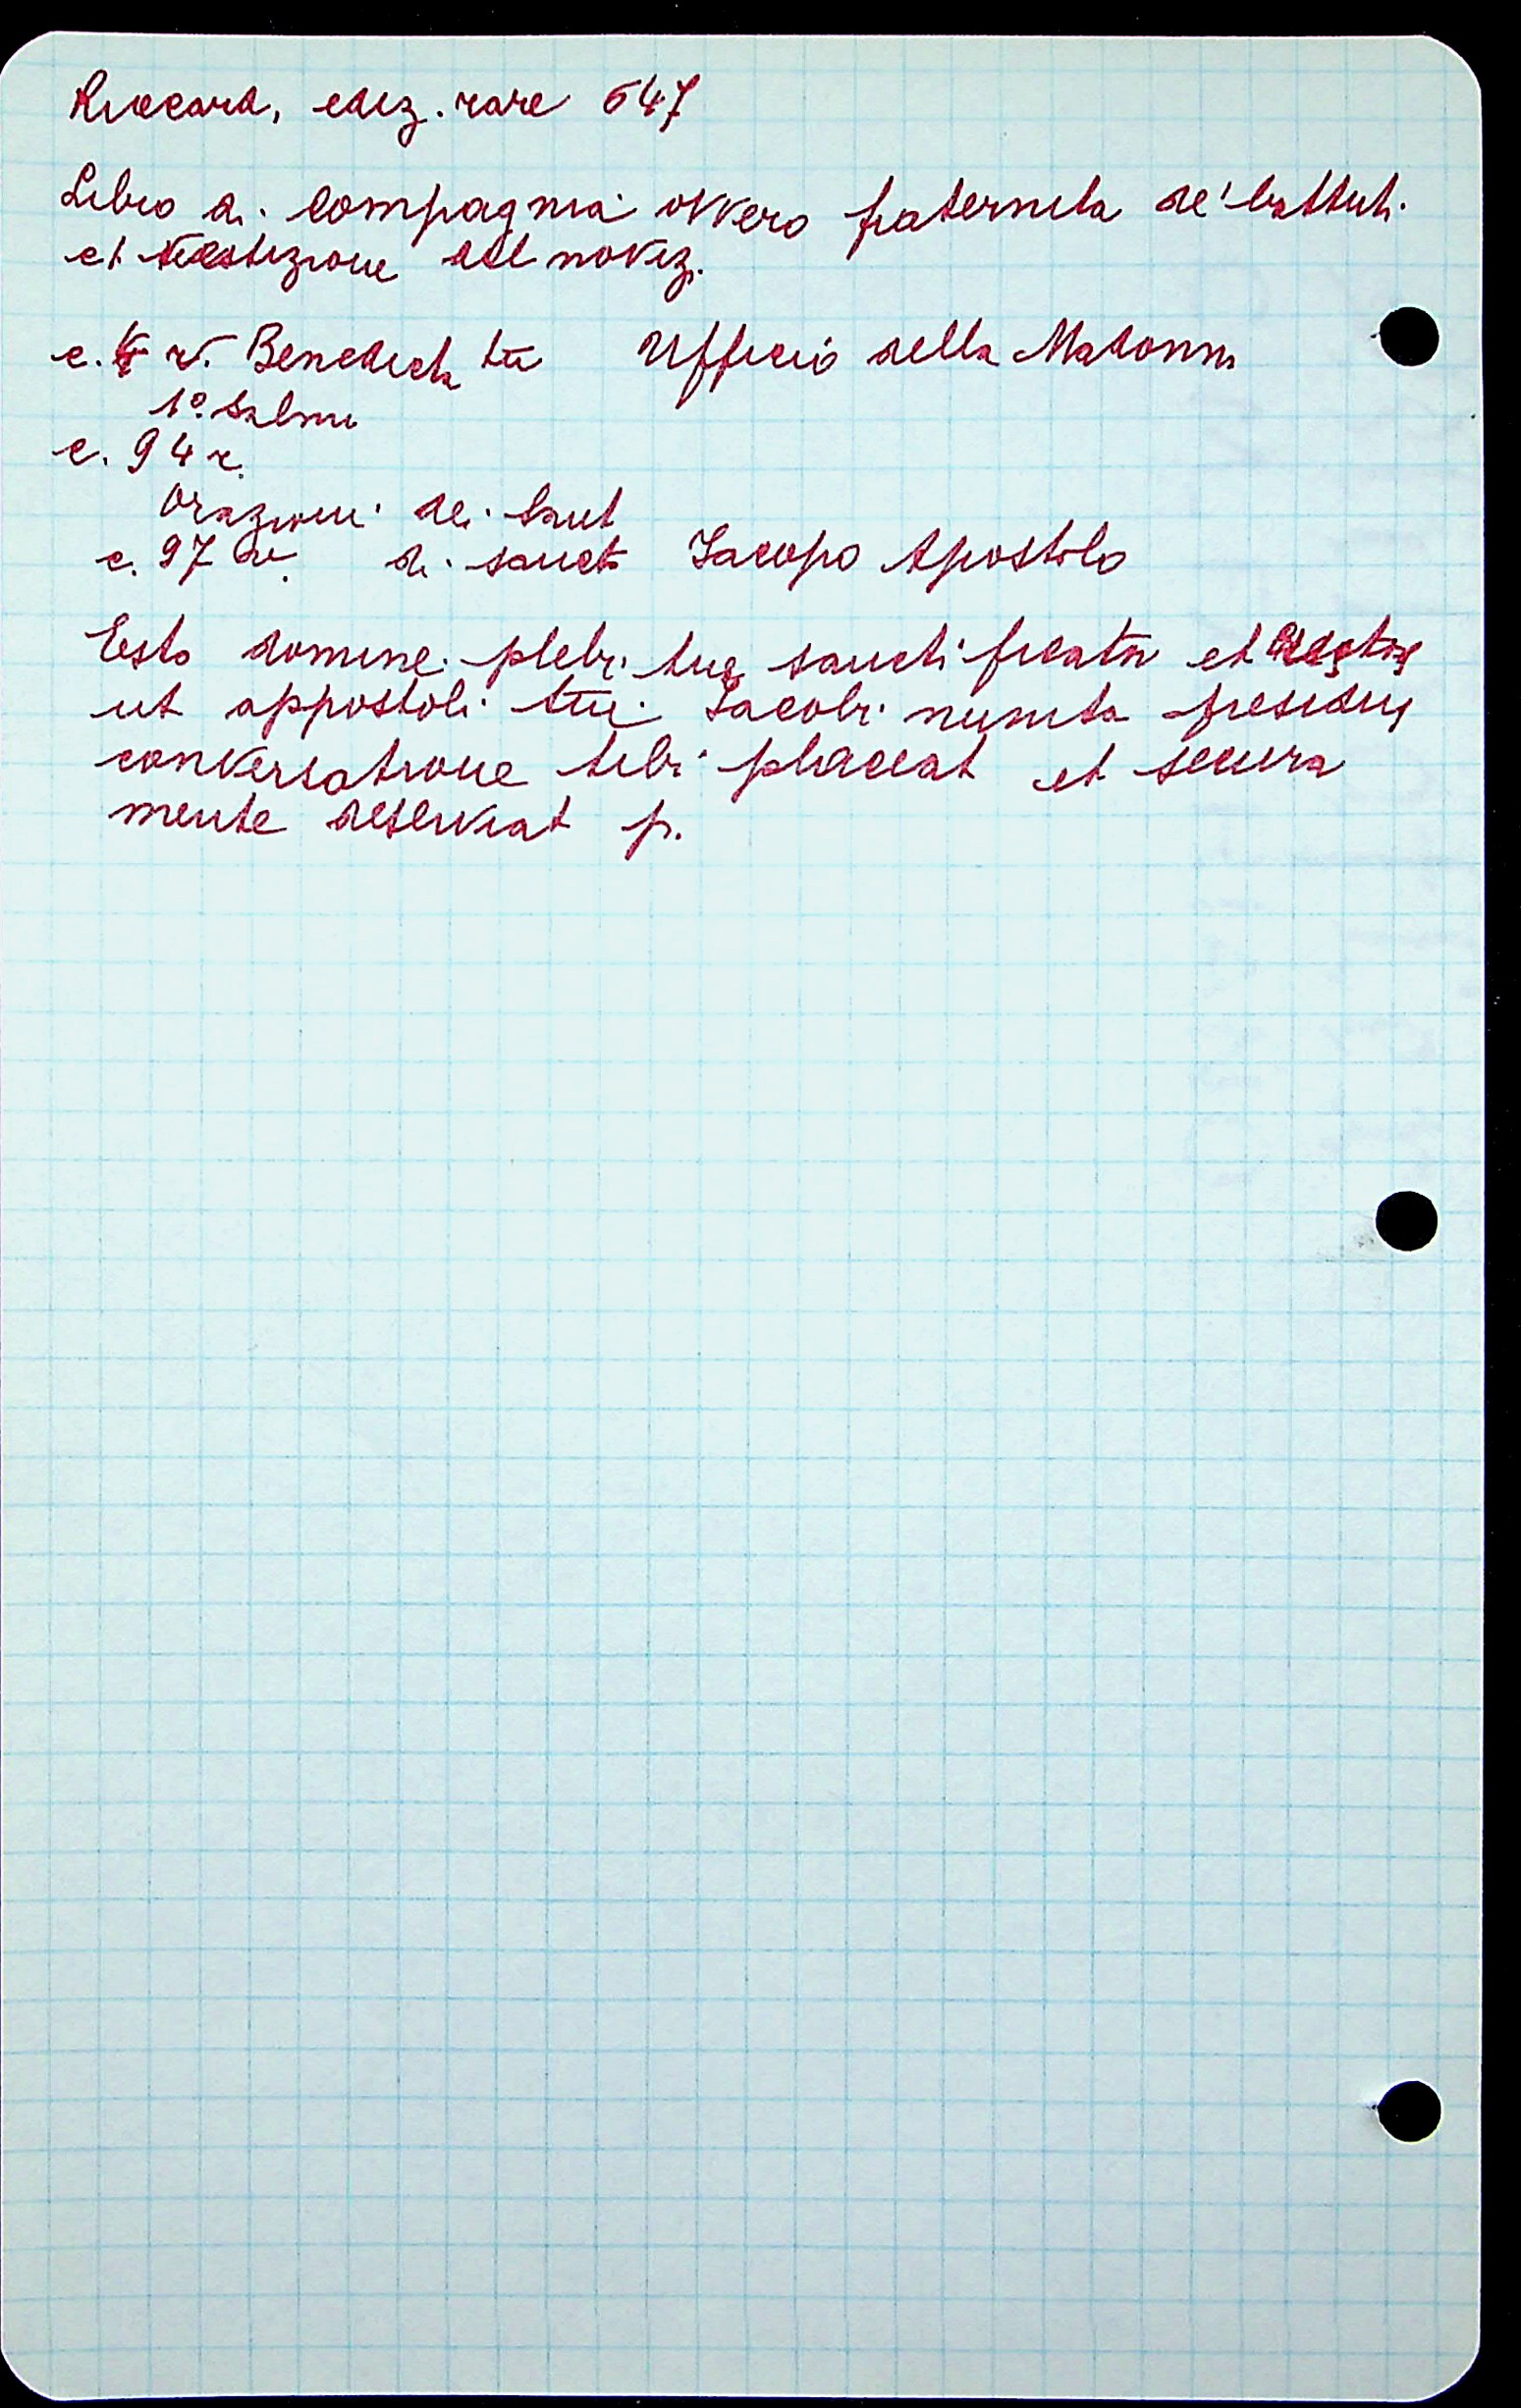 Riccard, ediz. rare 647
Libro di compagnia ovvero fraternita de' battuti
et vestizione del noviz.
c. 4 v. Benedicta tu Ufficio della Madonna
1° salmi
c. 94 r.
Orazioni dei Santi
c. 97 v. di sancto Jacopo Apostolo
Esto domine plebi tuę sanctificator et
ut appostoli tui Jacobi munita presidiis
conversatione tibi placeat et secura
mente deserviat p.